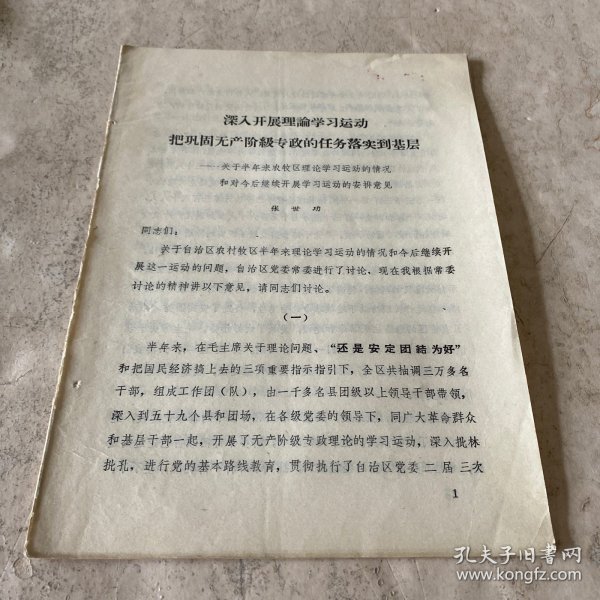 深入开展理論学习运动
把巩固无产阶級专政的任务落实到基层
——关于半年来农牧区理论学习运动的情况
和对今后继续开展学习运动的安排意见
张世功
同志们：
关于自治区农村牧区半年来理论学习运动的情况和今后继续开
展这一运动的问题，自治区党委常委进行了讨论。现在我根据常委
讨论的精神讲以下意见，请同志们讨论。
（一）
半年来，在毛主席关于理论问题、“还是安定团結为好”
和把国民经济搞上去的三项重要指示指引下，全区共抽调三万多名
干部，组成工作团（队），由一千多名县团级以上领导干部带领，
深入到五十九个县和团场，在各级党委的领导下，同广大革命群众
和基层干部一起，开展了无产阶级专政理论的学习运动，深入批林
批孔，进行党的基本路线教育，贯彻执行了自治区党委二届三次
1
孔夫子旧书网
www.kongfz.com